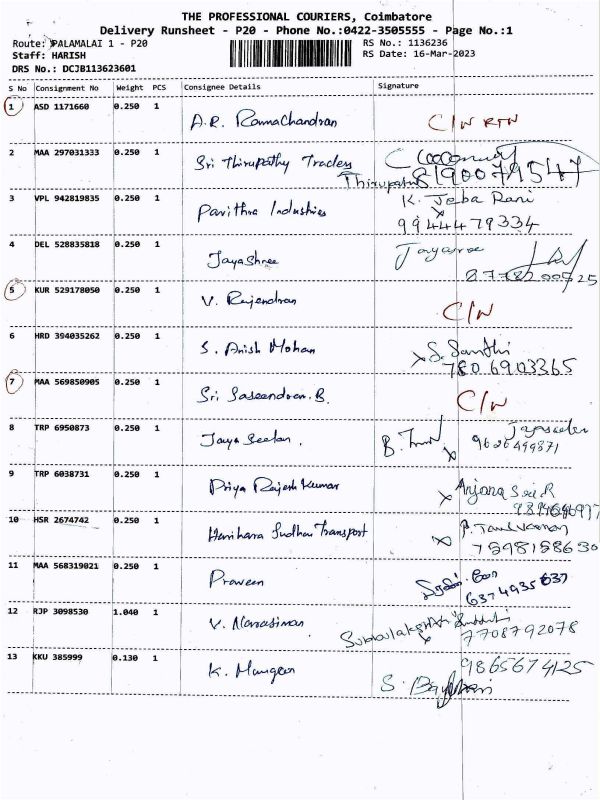 THE PROFESSIONAL COURIERS, Coimbatore
Delivery Runsheet - P20 - Phone No.:0422-3505555 - Page No.:1
Route: PALAMALAI 1 - P20
Staff: HARISH
DRS No.: DCJB113623601
RS No.: 1136236
RS Date: 16-Mar-2023
S No Consignment No Weight PCS Consignee Details Signature
1 ASD 1171660 0.250 1 A.R. Ramachandran C/N RTN
2 MAA 297031333 0.250 1 Sri Thirupathy Traders
8190079547
3 VPL 942819835 0.250 1 Pavithra Industries K. Jeba Rani
9944479334
4 DEL 528835818 0.250 1 JayaShree Jayasree
5 KUR 529178050 0.250 1 V. Rajendran C/N
6 HRD 394035262 0.250 1 S. Anish Mohan S. Santhi
7806903365
7 MAA 569850905 0.250 1 Sri Saseendran.B. C/N
8 TRP 6950873 0.250 1 Jaya Seelan.
9626499871
9 TRP 6038731 0.250 1 Priya Rajesh Kumar Anjana Sri R
10 HSR 2674742 0.250 1 Harihara Sudhan Transport
7598158630
11 MAA 568319021 0.250 1 Praveen
6374935637
12 RJP 3098530 1.040 1 V. Narasiman Subbulakshmi
7708792078
13 KKU 385999 0.130 1 K. Murugan 9865674125
S.